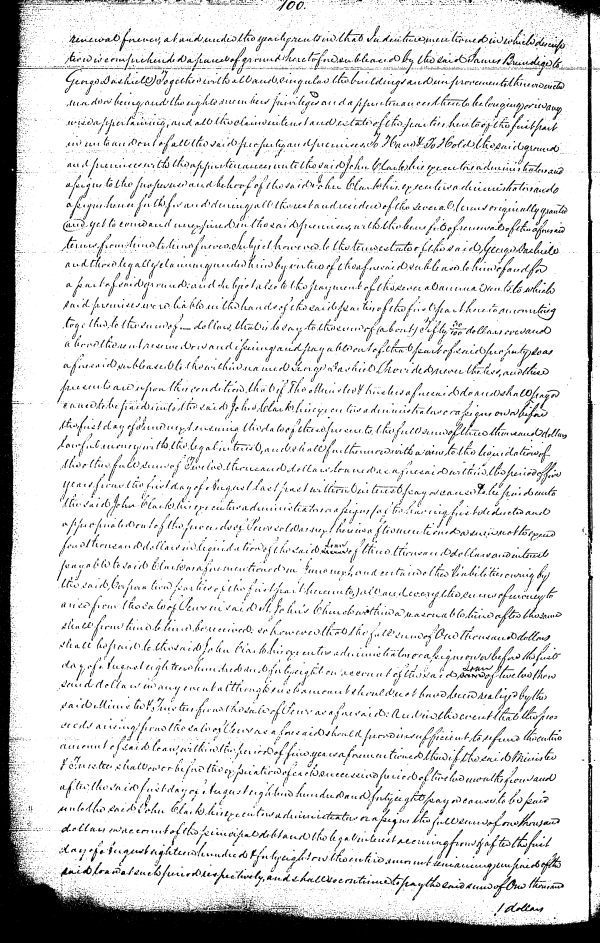 700.
renewal forever, at and under the yearly rents in that Indenture mentioned in which descrip
tion is comprehended a piece of ground heretofore subleased by the said James Bundige to
George Dashiell) Together with all and singular the buildings and improvements thereon erected
made or being and the rights members privileges and appurtenances thereto belonging or in any
wise appertaining, and all the claim interest and estate of the parties hereto of the first part
in unto and out of all the said property and premises To Have & To Hold the said ground
and premises with the appurtenances unto the said John Clark his executors administrators and
assigns to the proper use and behoof of the said John Clark his executors administrators and
assigns henceforth for and during all the rest and residue of the several terms originally granted
and yet to come and unexpired in the said premises, with the benefit of renewal of the aforesaid
terms from time to time forever. Subject however to the term estate of the said George Dashiell
and those legally claiming under him by virtue of the aforesaid sublease to him of and for
a part of said ground; and subject also to the payment of the several annual rents to which
said premises were liable in the hands of the said parties of the first part hereto amounting
together to the sum of dollars, that is to say to the sum of (about) Fifty dollars over and
above the rent reserved on and issuing and payable out of that part of said property so as
aforesaid subleased to the within named George Dashiell Provided nevertheless, and these
presents are upon this condition, that if The Minister & trustees aforesaid do and shall pay or
cause to be paid unto the said John Clark his executors administrators or assigns on or before
the first day of January ensuing the date of these presents the full sum of three thousand dollars
lawful money with the legal interest, and shall furthermore with a view to the liquidation of
the other full sum of Twelve thousand dollars loaned as aforesaid within the period of five
years from the first day of August last past without interest, pay or cause to be paid unto
the said John Clark his executors administrators or assigns (after having first deducted and
appropriated out of the proceeds of Pews sold as may hereinafter mentioned a sum not to exceed
four thousand dollars in liquidation of the said loan of three thousand dollars and interest
payable to said Clark as aforementioned in January next, and certain other liabilities owing by
the said Corporation parties of the first part hereunto) all and every the sums of money to
arise from the sale of Pews in said St John's Church within a reasonable time after the same
shall from time to time be received; so however that the full sum of One thousand dollars
shall be paid to the said John Clark his executors administrators or assigns on or before the first
day of August eighteen hundred and forty eight on account of the said loan of twelve thou
sand dollars in any event although such amount should not have been realized by the
said Minister & Trustees from the sale of Pews as aforesaid: And in the event that the pro
ceeds arising from the sale of Pews as aforesaid should prove insufficient to refund the entire
amount of said loan, within the period of five years aforementioned then if the said Minister
& Trustees shall on or before the expiration of each successive period of twelve months from and
after the said first day of August eighteen hundred and forty eight pay or cause to be paid
unto the said John Clark, his executors administrators or assigns the full sum of one thousand
dollars on account of the principal debt and the legal interest accruing from & after the first
day of August eighteen hundred & forty eight on the entire amount remaining unpaid of the
said loan at such period respectively, and shall so continue to pay the said sum of One thousand
dollars